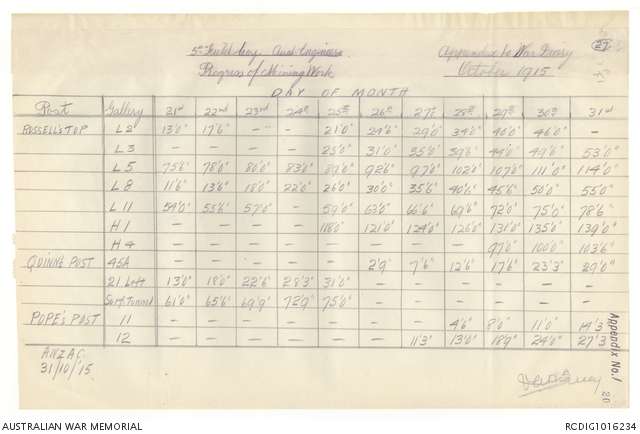 5th Field Coy. Aust. Engineers Appendix to War Diary 27
Progress of Mining Work October 1915
DAY OF MONTH
Post Gallery 21st 22nd 23rd 24th 25th 26th 27th 28th 29th 30th 31st
RUSSELL'S TOP L2 13'0" 17'6" — — 21'0" 24'6" 29'0" 34'0" 40'0" 46'0" —
L3 — — — — 25'0" 31'0" 35'0" 39'6" 44'0" 49'6" 53'0"
L5 75'6" 78'0" 80'0" 83'0" 89'0" 92'6" 97'0" 102'0" 107'0" 111'0" 114'0"
L8 11'6" 13'6" 18'0" 22'0" 26'0" 30'0" 35'6" 40'6" 45'6" 50'0" 55'0"
L11 54'0" 55'6" 57'0" — 59'0" 63'0" 66'6" 69'6" 72'0" 75'0" 78'6"
H1 — — — — 118'0" 121'0" 124'0" 126'0" 131'0" 135'0" 139'0"
H4 — — — — — — — — 97'0" 100'0" 103'6"
QUINN'S POST 45A — — — — — 2'9" 7'6" 12'6" 17'6" 23'3" 29'0"
21 Left 13'0" 18'0" 22'6" 28'3" 31'0" — — — — — —
Serf. Tunnel 61'0" 65'6" 69'9" 72'9" 75'0" — — — — — —
POPE'S POST 11 — — — — — — — 4'6" 8'0" 11'0" 14'3"
12 — — — — — — 11'3" 13'0" 18'9" 24'0" 27'3"
ANZAC
31/10/'15
Appendix No. 1
20
AUSTRALIAN WAR MEMORIAL RCDIG1016234